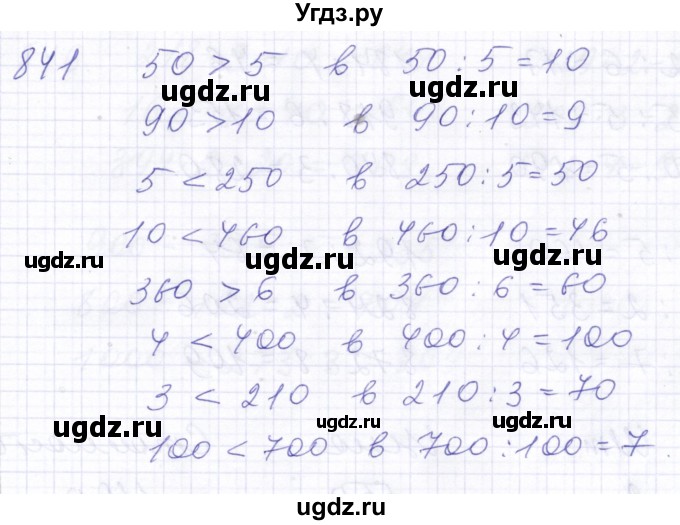 Угдз.ру
841 50 > 5 в 50 : 5 = 10
ugdz.ru ugdz.ru
90 > 10 в 90 : 10 = 9
5 < 250 в 250 : 5 = 50
10 < 460 в 460 : 10 = 46
ugdz.ru ugdz.ru ugdz.ru
360 > 6 в 360 : 6 = 60
4 < 400 в 400 : 4 = 100
3 < 210 в 210 : 3 = 70
ugdz.ru ugdz.ru ugdz.ru
100 < 700 в 700 : 100 = 7
ugdz.ru